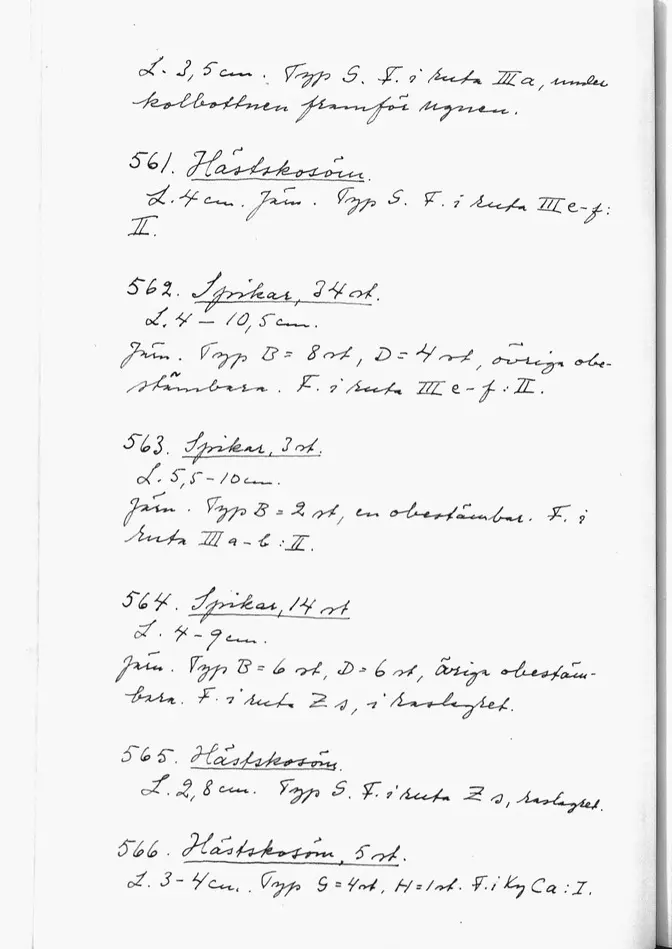 L. 3,5 cm. Typ G. F. i ruta III a, under
kolbottnen framför ugnen.
561. Hästskosöm.
L. 4 cm. Järn. Typ G. F. i ruta III e-f:
II.
562. Spikar, 34 st.
L. 4 – 10,5 cm.
Järn. Typ B = 8 st, D = 4 st, övriga obe-
stämbara. F. i ruta III e-f: II.
563. Spikar, 3 st.
L. 5,5-10 cm.
Järn. Typ B = 2 st, en obestämbar. F. i
ruta III a-b: II.
564. Spikar, 14 st
L. 4-9 cm.
Järn. Typ B = 6 st, D = 6 st, övriga obestäm-
bara. F. i ruta Z s, i raslagret.
565. Hästskosöm.
L. 2,8 cm. Typ G. F. i ruta Z s, raslagret.
566. Hästskosöm, 5 st.
L. 3-4 cm. Typ G = 4 st, H = 1 st. F. i Ky Ca: I.